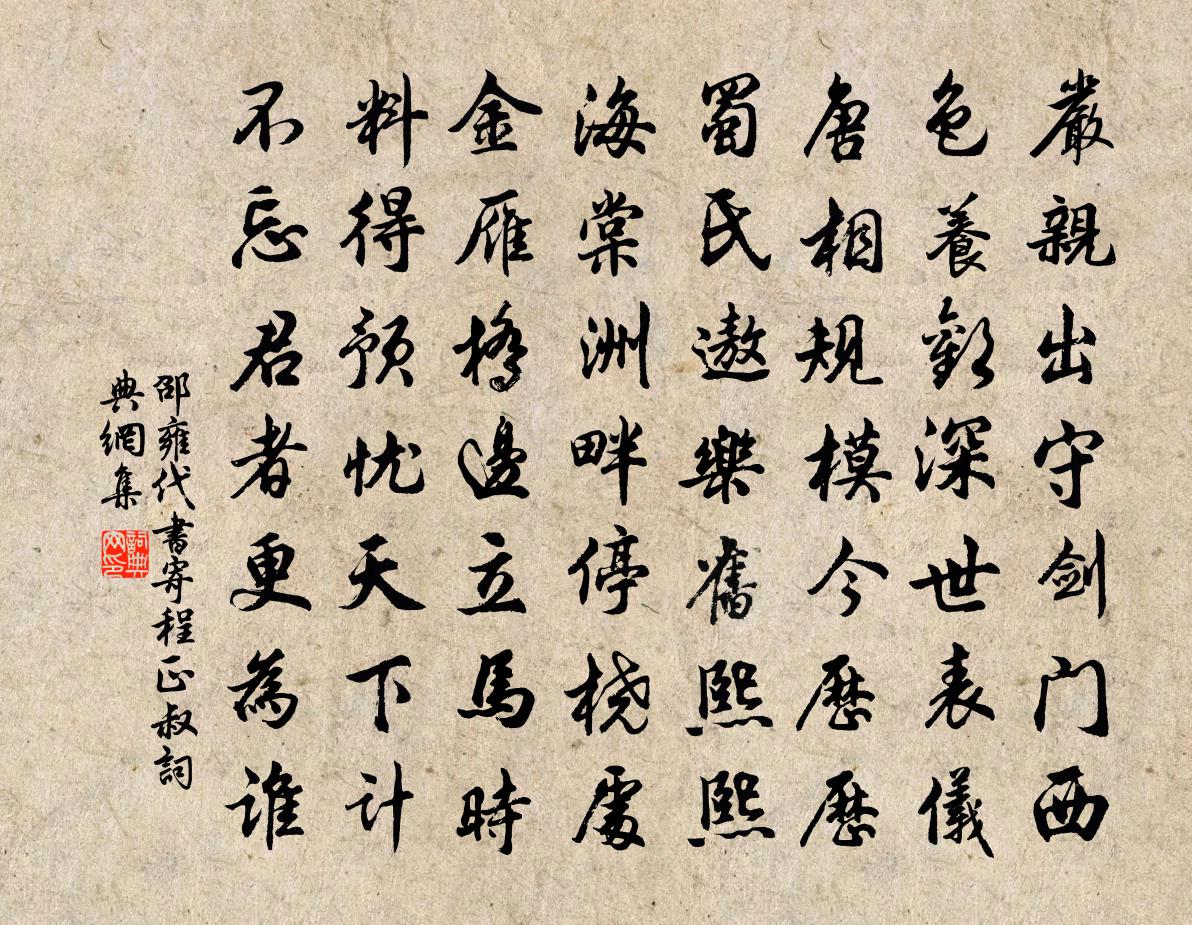 嚴親出守剑门西
色養歡深世表儀
唐相規模今歷歷
蜀民遨樂舊熙熙
海棠洲畔停橈處
金雁橋邊立馬時
料得預忧天下计
不忘君者更為誰
邵雍代書寄程正叔詞
典網集
詞典网印